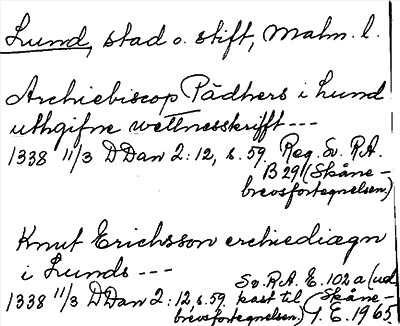 Lund, stad o. stift, Malm. l.
Archiebiscop Pädhers i Lund
uthgifne wettnesskrifft ---
1338 11/3 DDan 2:12, s. 59. Reg. Sv. R.A.
B 29 (Skåne-
brevsfortegnelsen.)
Knut Erichsson erchiediægn
i Lunds ---
1338 11/3 DDan 2:12, s. 59. Sv. R.A. E. 102 a (ud-
kast til Skåne-
brevsfortegnelsen.) J. E. 1965.